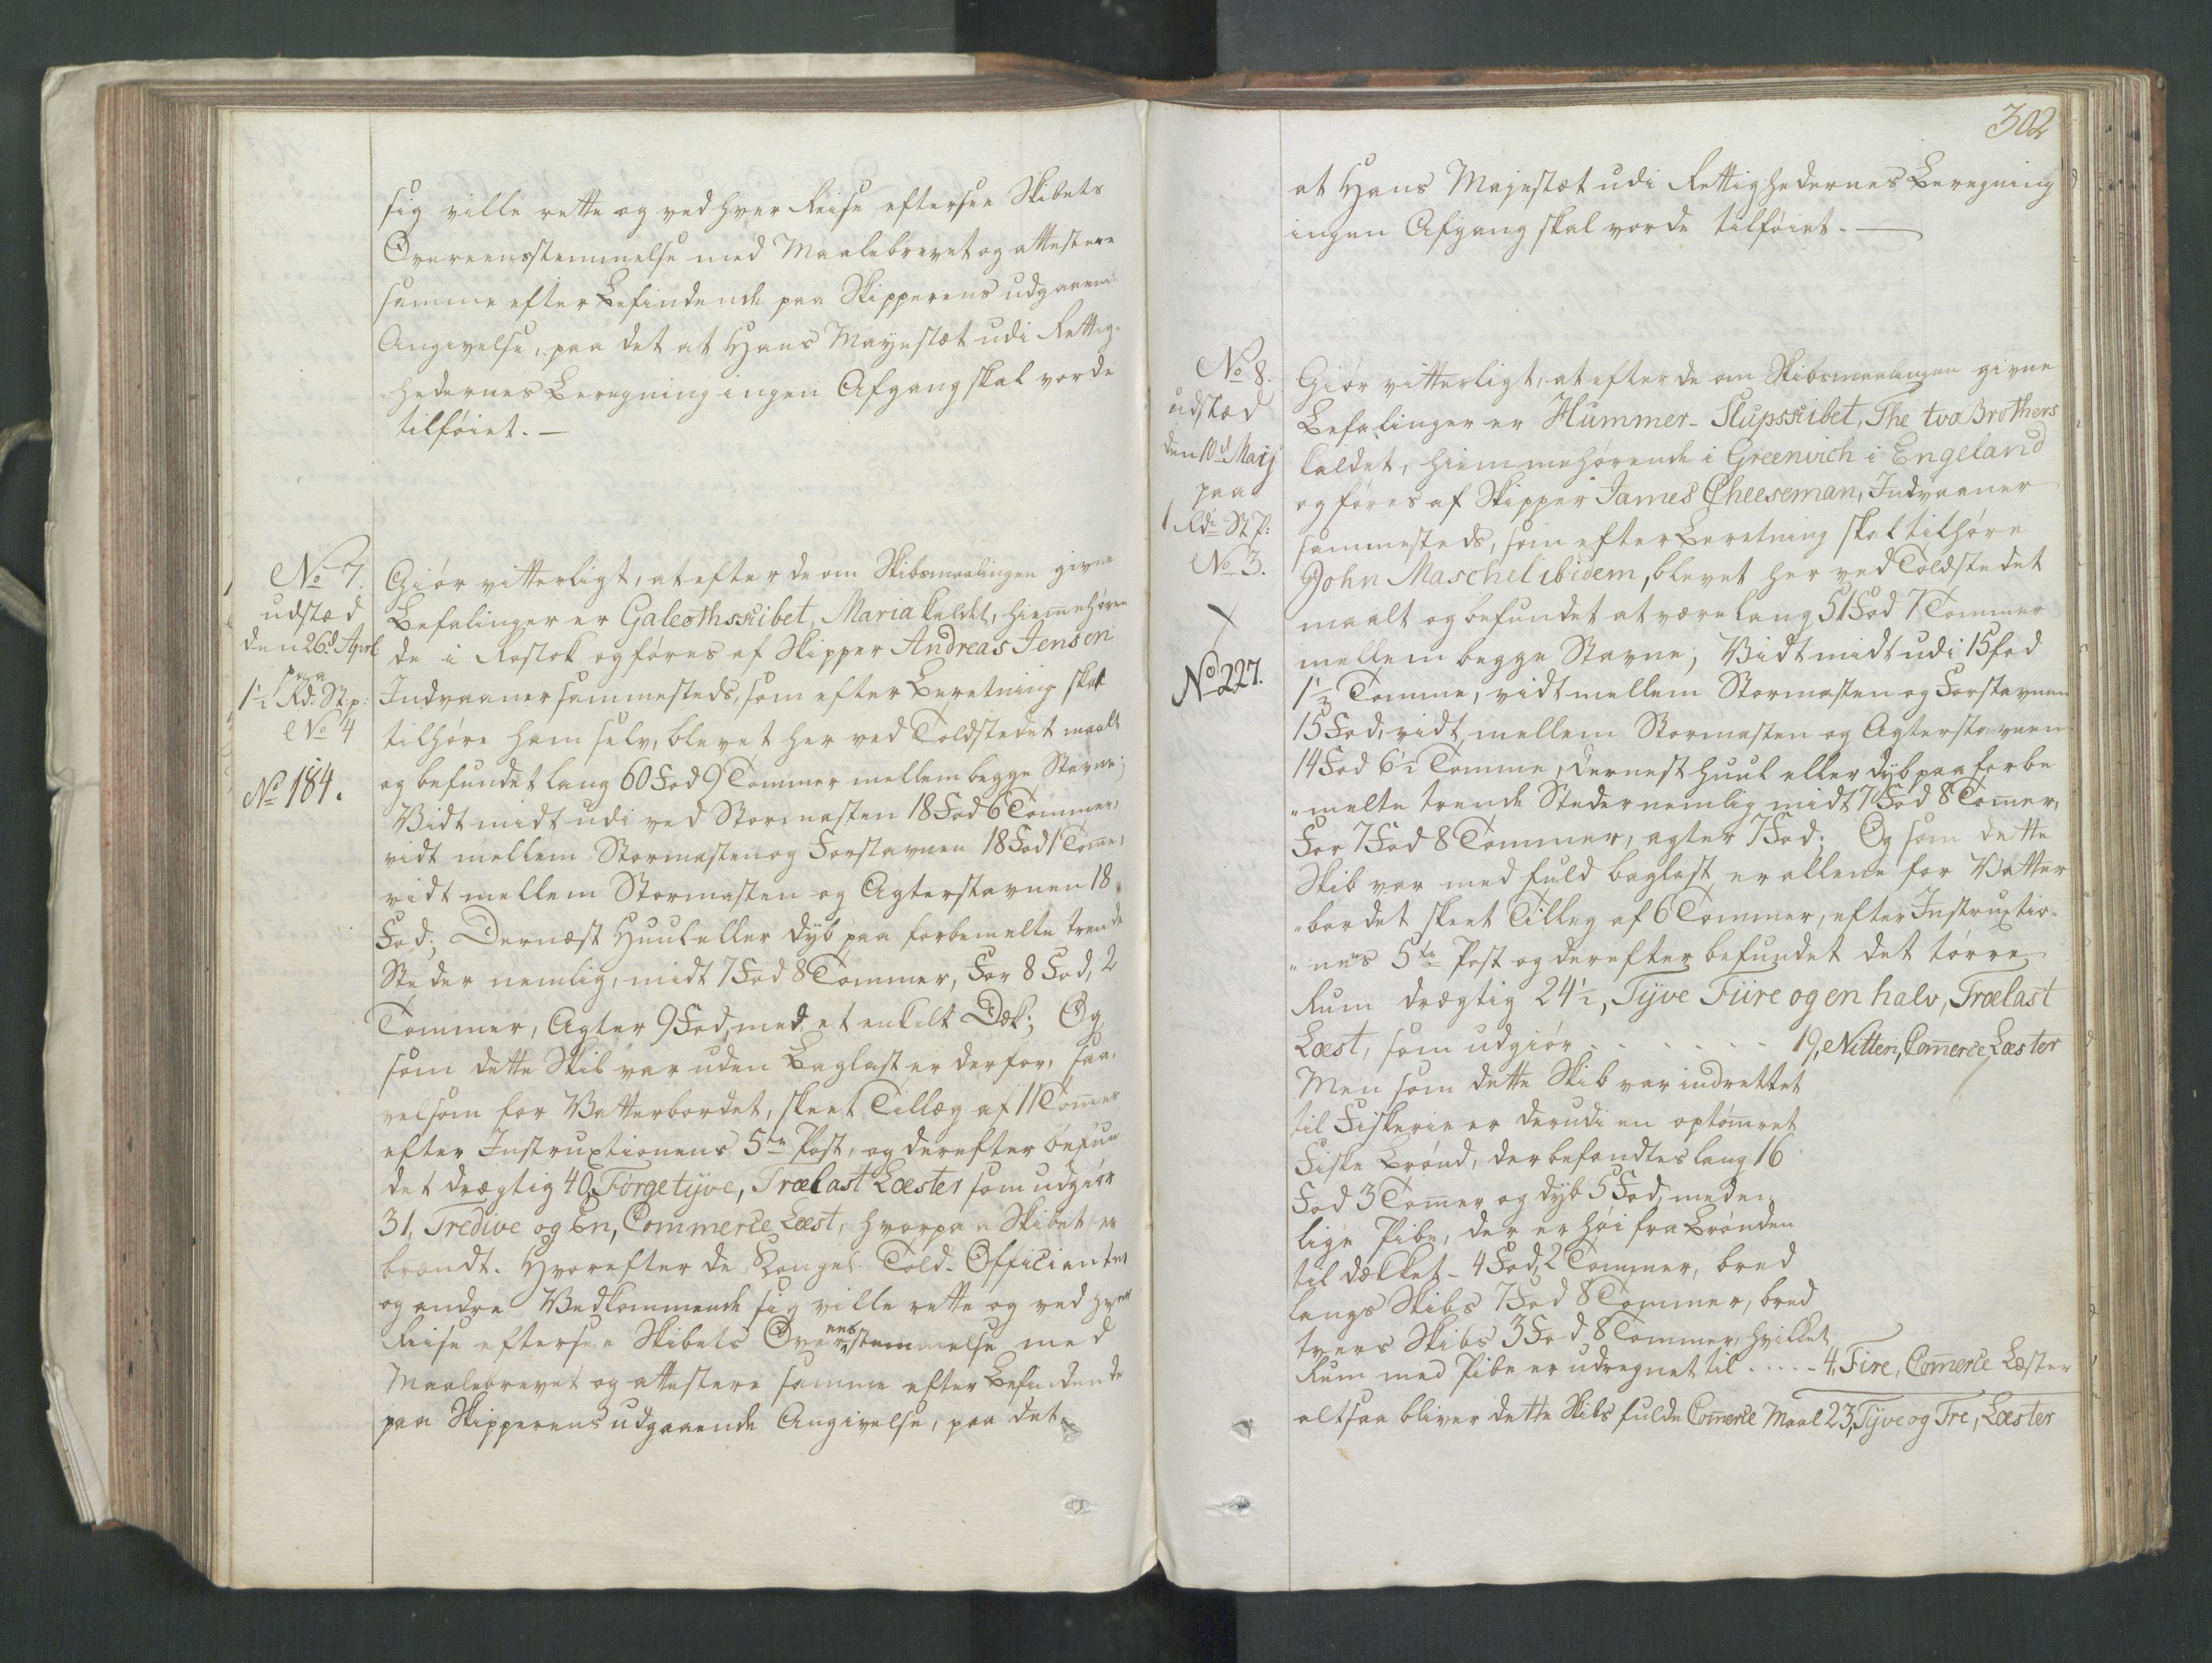 sig ville rette og ved hver Reise eftersee Skibets
Overeensstemmelse med Maalebrevet og attestere
samme efter Befindende paa Skipperens udgaaen„
Angivelse, paa det at Hans Mayestæt udi Rettig„
„hedernes Beregning ingen Afgang skal vorde
tilføiet. —
No 7.
udstæd
den 26d April
paa
1½ Rd: St: p:
No 4
No 184.
Giør vitterligt, at efter de om Skibsmaalingen givne
Befalinger er Galeothsskibet, Maria kaldet, hiem̅ehøren
de i Rostok og føres af Skipper Andreas Jensen
Indvaaner sammesteds, som efter Beretning skal
tilhøre ham selv, blevet her ved Toldstedet maalt
og befundet lang 60 Fod 9 Tommer mellem begge Stavne;
Vidt midt udi ved Stormasten 18 Fod 6 Tommer,
vidt mellem Stormasten og Forstavnen 18 Fod 1 Tom̅e,
vidt mellem Stormasten og Agterstavnen 18
Fod; Dernæst Huul eller dyb paa forbemelte trende
Steder nemlig, midt 7 Fod 8 Tommer, For 8 Fod, 2
Tommer, Agter 9 Fod, med et enkelt Dæk; Og
som dette Skib var uden Baglast er derfor, saa„
velsom for Vatterbordet, skeet Tillæg af 11 Tom̅er
efter Instruxtionens 5te Post, og derefter befun
det drægtig 40, Förgetyve, Trælast Læster som udgiør
31, Tredive og En, Commerce Læst, hvorpaa Skibet er
brændt. Hvorefter de Kongel. Told-Officianter
og andre Vedkommende sig ville rette og ved hver
Reise eftersee Skibets Overeensstemmelse med
Maalebrevet og attestere samme efter Befindende
paa Skipperens udgaaende Angivelse, paa det
302
at Hans Majestæt udi Rettighedernes Beregning
ingen Afgang skal vorde tilføiet. —
No 8.
udstæd
den 10d Maij
paa
1 Rdr St p:
No 3.
No 227.
Giør vitterligt, at efter de om Skibsmaalingen givne
Befalinger er Hummer-Slupsskibet, The two Brothers
kaldet, hiemmehørende i Greenvich i Engeland
og føres af Skipper James Cheeseman, Indvaaner
sammesteds, som efter Beretning skal tilhøre
John Maschel ibidem, blevet her ved Toldstedet
maalt og befundet at være lang 51 Fod 7 Tommer
mellem begge Stavne; Vidt midt udi 15 fod
1⅓ Tomme, vidt mellem Stormasten og Forstavnen
15 Fod, vidt mellem Stormasten og Agterstavnen
14 Fod 6½ Tomme, dernest huul eller dyb paa forbe
„melte trende Steder nemlig midt 7 Fod 8 Tom̅er,
For 7 Fod 8 Tommer, agter 7 Fod; Og som dette
Skib var med fuld baglast, er allene for Vatter
„bordet skeet Tilleg af 6 Tommer, efter Instruxtio„
„nens 5te Post og derefter befundet det tørre
Rum drægtig 24½, Tyve Fiire og en halv, Trælast
Læst, som udgiør . . . . . . 19, Nitten, Com̅erce Læster
Men som dette Skib var indrettet
til Fiskerie er derudi en optøm̅ret
Fiske Brønd, der befandtes lang 16
Fod 3 Tom̅er og dyb 5 Fod, meden„
lige Pibe, der er høi fra Brønden
til dækket - 4 Fod, 2 Tommer, bred
langs Skibs 7 Fod 8 Tommer, bred
tvers Skibs 3 Fod 8 Tommer, hvilket
Rum med Pibe er udregnet til . . . . . 4, Fire, Com̅erce Læster
altsaa bliver dette Skibs fulde Com̅erce Maal 23, Tyve og Tre, Læster